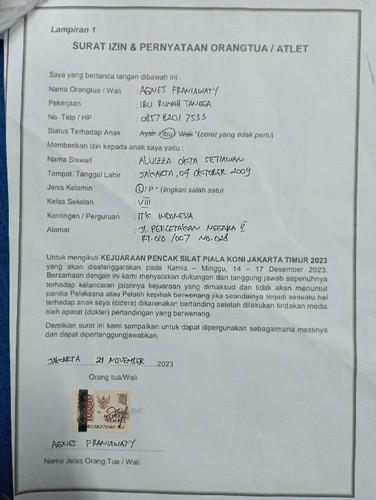 Lampiran 1
SURAT IZIN & PERNYATAAN ORANGTUA / ATLET
Saya yang bertanda tangan dibawah ini :
Nama Orangtua / Wali : AGNES FRANIAWATY
Pekerjaan : IBU RUMAH TANGGA
No. Telp / HP : 0857 8201 7533
Status Terhadap Anak : Ayah / Ibu / Wali *(coret yang tidak perlu)
Memberikan Izin kepada anak saya yaitu :
Nama Siswa/i : ALVIZZA OKTA SETIAWAN
Tempat, Tanggal Lahir : JAKARTA, 04 OKTOBER 2009
Jenis Kelamin : L / P * (lingkari salah satu)
Kelas Sekolah : VIII
Kontingen / Perguruan : INDONESIA
Alamat : Jl. PERCETAKAN NEGARA
RT.010 /007 NO.02B
Untuk mengikuti KEJUARAAN PENCAK SILAT PIALA KONI JAKARTA TIMUR 2023
yang akan diselenggarakan pada Kamis – Minggu, 14 – 17 Desember 2023.
Bersamaan dengan ini kami menyatakan dukungan dan tanggung jawab sepenuhnya
terhadap kelancaran jalannya kejuaraan yang dimaksud dan tidak akan menuntut
panitia Pelaksana atau Pelatih kepihak berwenang jika seandainya terjadi sesuatu hal
terhadap anak saya (cidera) dikarenakan bertanding setelah dilakukan tindakan medis
oleh aparat (dokter) pertandingan yang berwenang.
Demikian surat ini kami sampaikan untuk dapat dipergunakan sebagaimana mestinya
dan dapat dipertanggungjawabkan.
JAKARTA, 21 NOVEMBER 2023
Orang tua/Wali
10000
METERAI
TEMPEL
AGNES FRANIAWATY
Nama Jelas Orang Tua / Wali